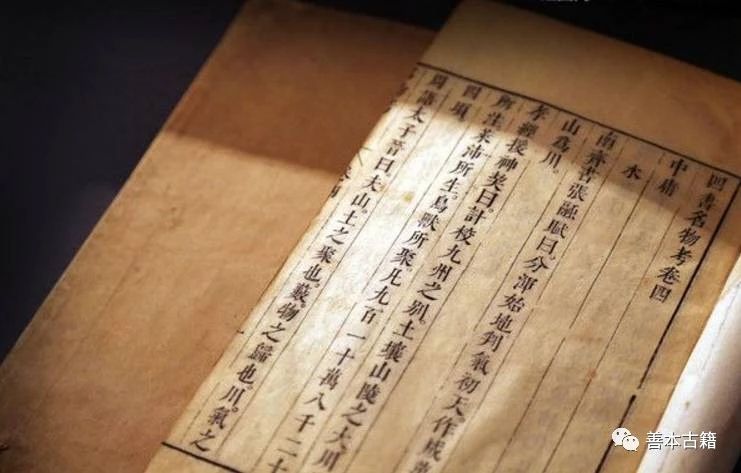 四書名物考卷四
中庸
水
南齊書張融賦曰分渾始地判氣初天作成
山為川。
孝經援神契曰。計校九州之別。土壤山陵之大川
所注萊沛所生。鳥獸所聚。凡九百一十萬八千二十
四頃。
周語太子晉曰。夫山。土之聚也。藪。物之歸也。川。氣之
善本古籍